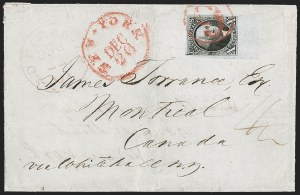 NEW-YORK
DEC
28
James Torrance, Esq
Montreal
Canada
via Whitehall N.Y.